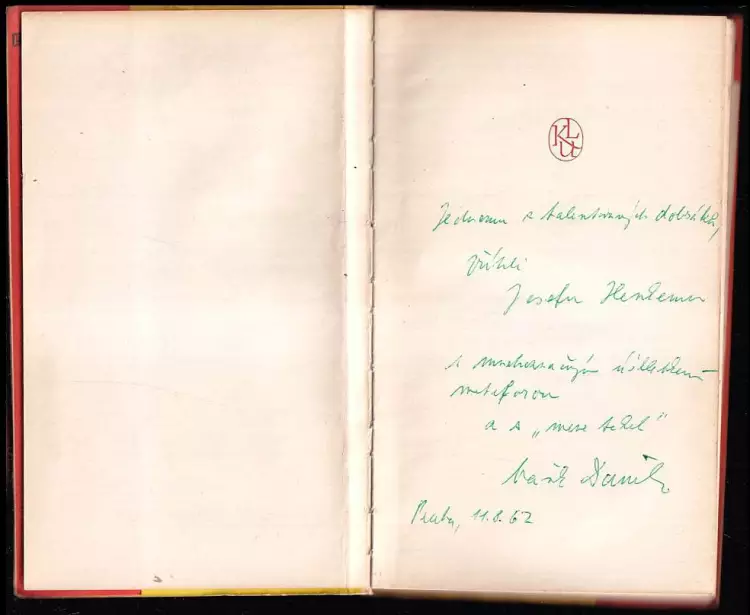 KLU
Jednomu z talentovaných dobráků,
příteli
Josefu Henžemu
s mnohoznačným úšlebkem
metaforou
a s „mene tekel"
Vašek Daněk
Praha, 11.8.62